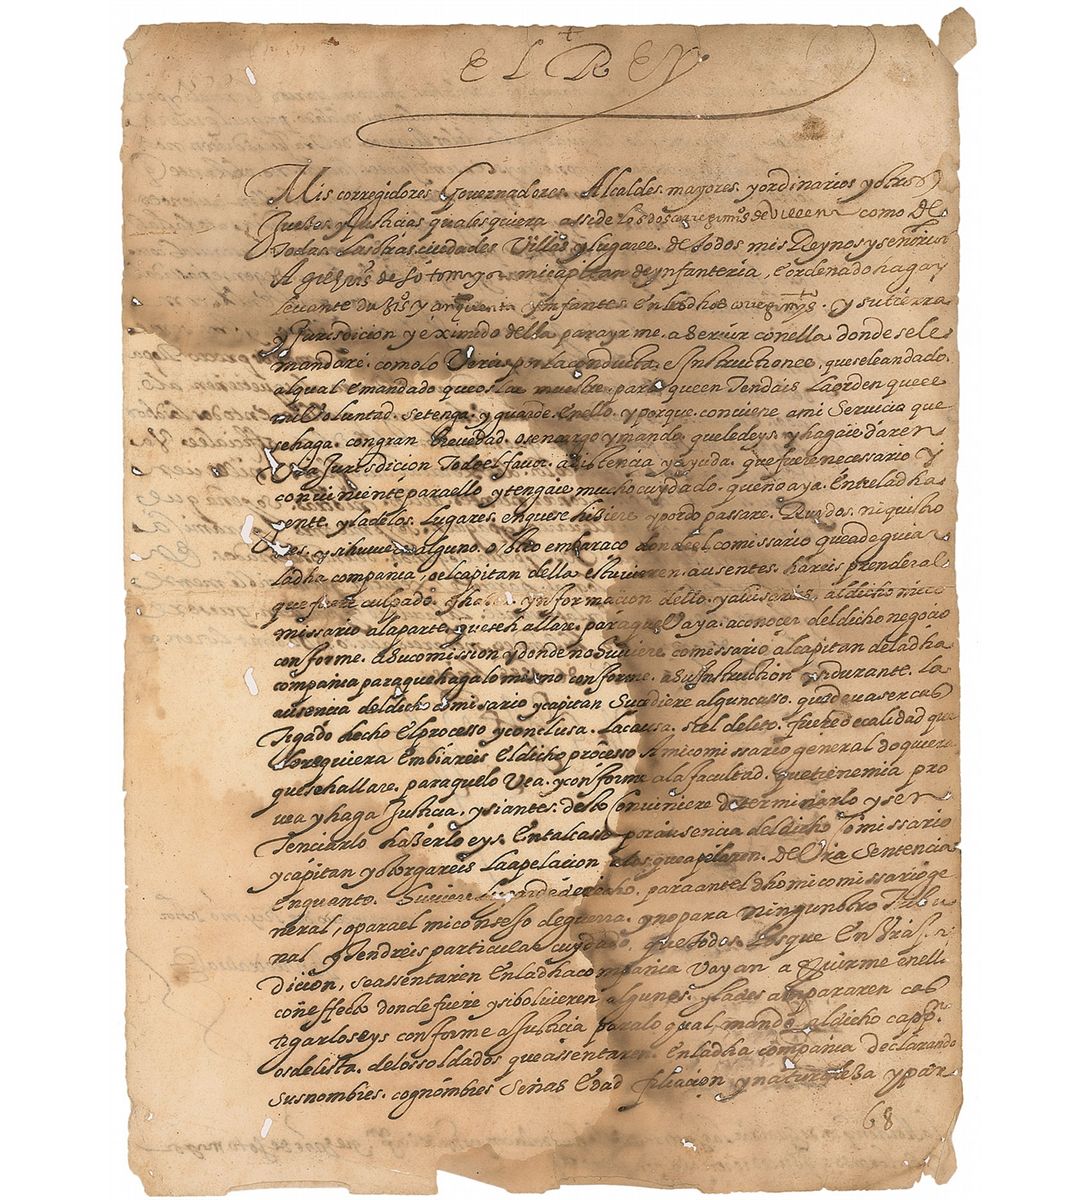 EL REY
Mis corregidores Governadores. Alcaldes mayores. yordinarios y otros
Juezes y Justicias qualesquiera assi de los dos corregimios de Villena como de
todas. lasotras. ciudades Villas y lugares. de todos mis Reynos y señorios
A de Soto mayor mi capitan de ynfanteria, e ordenado haga y
levante duzios y cinquenta ynfantes en los dhos corregimios. y su tierra
y Jurisdicion y eximido della para yr me. a servir con ella donde se le
mandare. como lo Vereis por la conducta. e Instructiones, que se le an dado.
al qual e mandado que os las muestre. para que en Tendais la orden que es
mi Voluntad. se tenga. y guarde. en ello. y porque. conviene a mi Servicio que
se haga. con gran brevedad. os encargo y mando que le deys. y hagais dar en
Vra Jurisdicion Todo el favor. asistencia y ayuda. que fuere necessario Y
conviniente para ello y tengais mucho cuydado. que no aya. Entre la dha
gente. y la de los. Lugares. en que se hiziere y por do passare. Ruydos. ni quistio
nes, y si huviere alguno. o otro embaraço donde el comissario que a de guiar
la dha compañia, o el capitan della estuvieren. ausentes. hareis prender al
que fuere culpado. y haber ynformacion dello. y avisareis, al dicho mi co
missario a la parte. que se hallare. para que Vaya. a conocer del dicho negocio
conforme. a su comission y donde no huviere comissario al capitan de la dha
compañia para que haga lo mismo conforme. a su Instruction y si durante. la
ausencia del dicho comissario y capitan Sucediere algun caso. que deva ser cas
tigado hecho El processo y conclusa. La causa. si el delito. fuere de calidad que
lo requiera Embiareis El dicho processo a mi comissario general do quiera
que se hallare. para que lo Vea. y conforme a la facultad. que tiene mia pro
vea y haga Justicia, y si antes. desto Conviniere determinarlo y sen
Tenciarlo hazerlo eys. En tal caso por ausencia del dicho Comissario
y capitan y otorgareis La apelacion a los que apelaren. de Vra Sentencia
en quanto. huviere lugar de derecho, para ante el dho mi comissario ge
neral, o para el mi consejo de guerra. y no para Ningun otro Tribu
nal y Tendreis particular cuydado, que todos. Los que En Vra Juris
dicion, se assentaren En la dha compañia Vayan a servirme en el li
con effecto donde fuere y si bolvieren algunos. y la desampararen cas
tigarlos eys conforme a Justicia para lo qual, mando, al dicho cappn
os de lista. de los soldados que assentaren. En la dha compañia declarando
sus nombres. cognombres Señas Edad filiacion y naturaleza y par
68